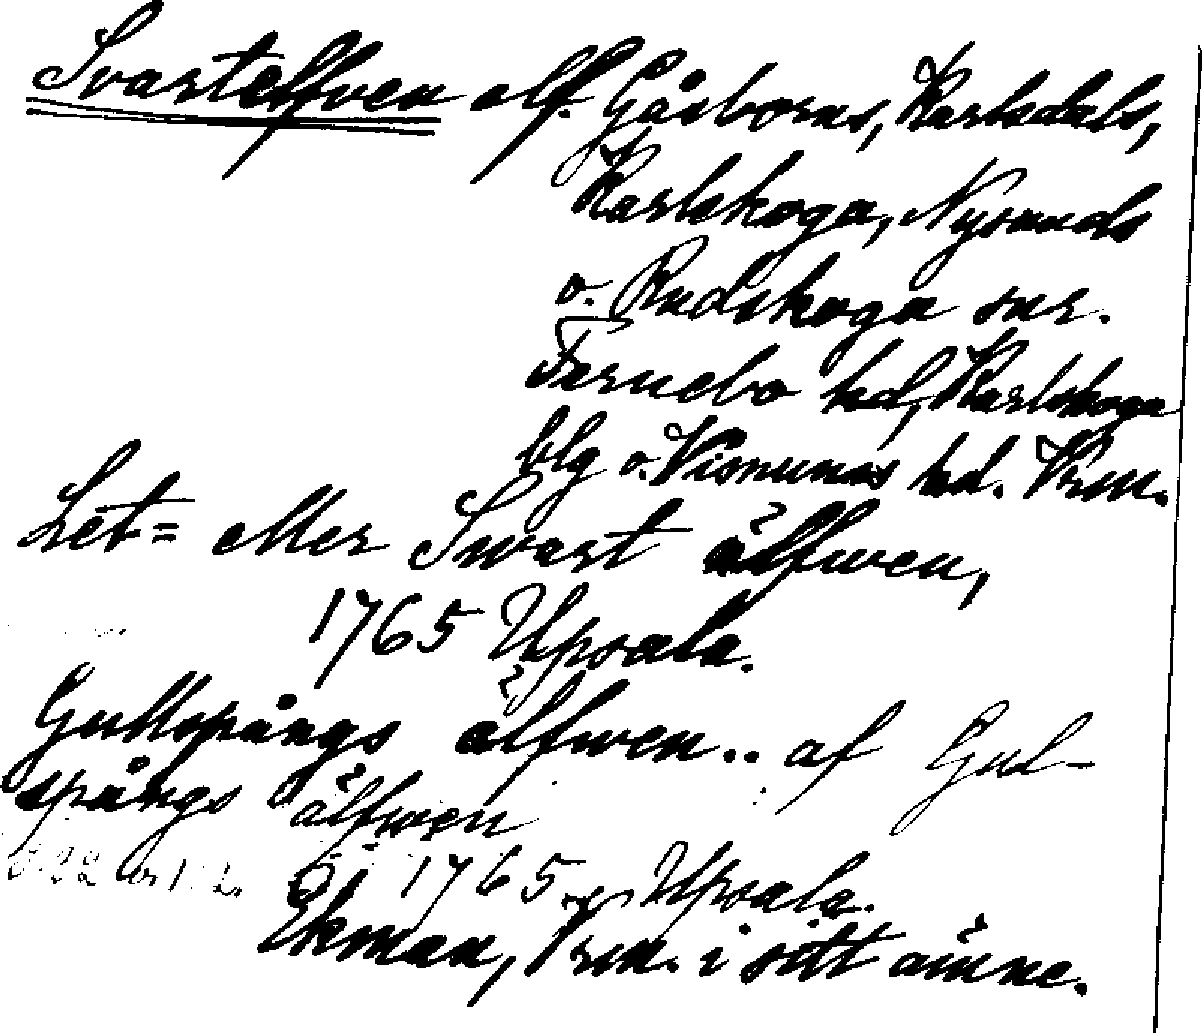 Svartelfven elf. Gåsborns, Karlsdals,
Karlskoga, Nysunds
o. Rudskoga snr.
Fernebo hd, Karlskoga
blg o. Visnums hd. Vrm.
Let= eller Swart älfwen,
1765 Upsala.
Gullspångs älfwen.. af Gul-
spångs älfwen
1765 Upsala.
Ekman, Vrm. i sitt ämne.